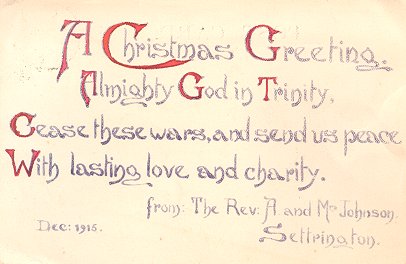 A Christmas Greeting.
Almighty God in Trinity,
Cease these wars, and send us peace
With lasting love and charity.
from: The Rev: A and Mrs Johnson
Settrington.
Dec: 1915.